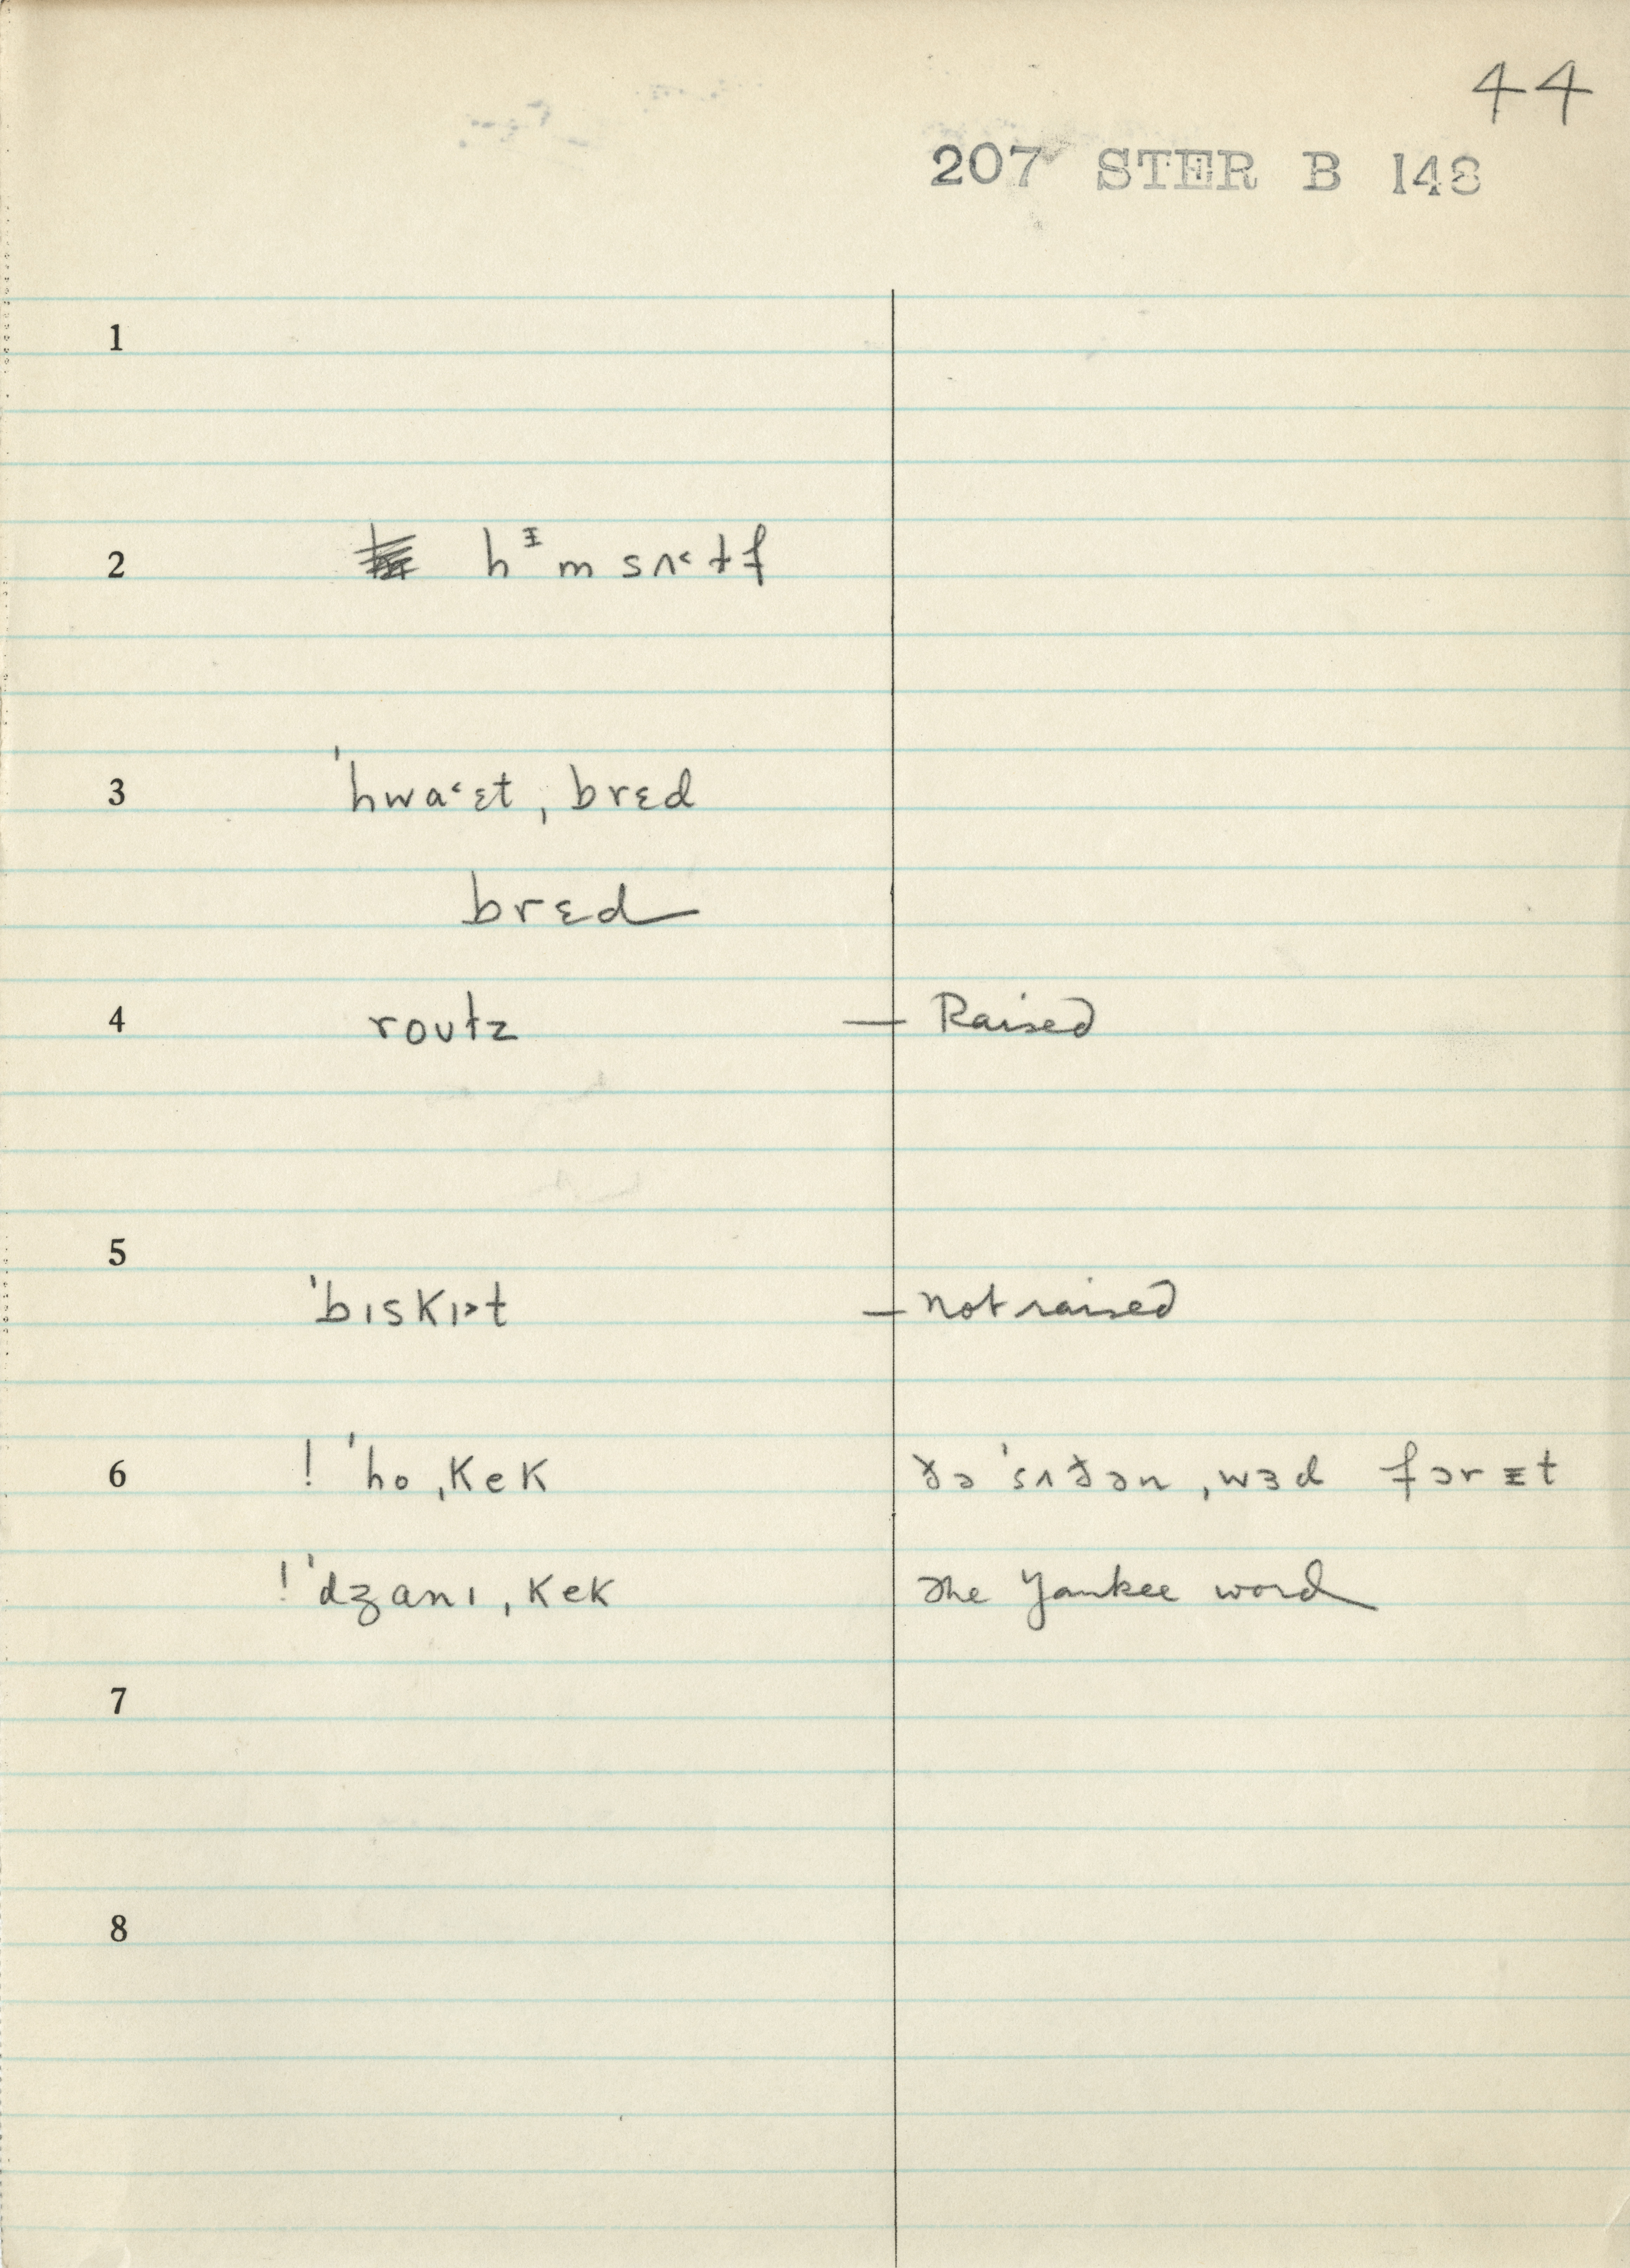 44
207 STER B 148
1
2 hᵻmsʌ˂ɫf
3 ˈhwa˂ɛt ˌbrɛd
brɛd
4 roʊɫz — Raised
5
ˈbɪskɪ˃t — not raised
6 ! ˈho ˌkek ðə ˈsʌðən ˌwɜd fɔrᵻt
! ˈdʒanɪ ˌkek the Yankee word
7
8